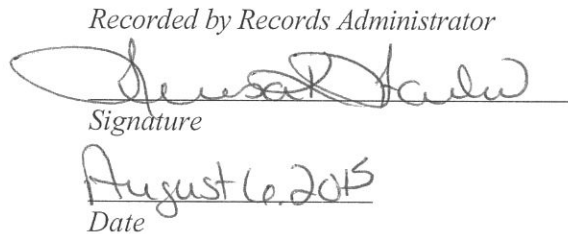 Recorded by Records Administrator
Signature
August 6. 2015
Date